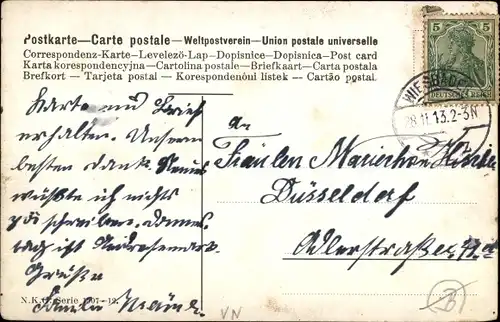 Postkarte—Carte postale—Weltpostverein—Union postale universelle
Correspondenz-Karte—Levelező-Lap—Dopisnice—Dopisnica—Post card
Karta korespondencyjna—Cartolina postale—Briefkaart—Carta postala
Brefkort — Tarjeta postal — Korespondenční listek — Cartão postal
5 5
DEUTSCHES REICH
WIESBADEN
28.11.13.2-3N
Karte und Brief
erhalten. Unsern
besten Dank. Neues
wüßte ich nichts
zu schreiben. Donners
tag ist Andreasmark
Grüße
Familie
An
Fräulein Mariechen
Düsseldorf
Adlerstraße
N.K. Serie
VN
B